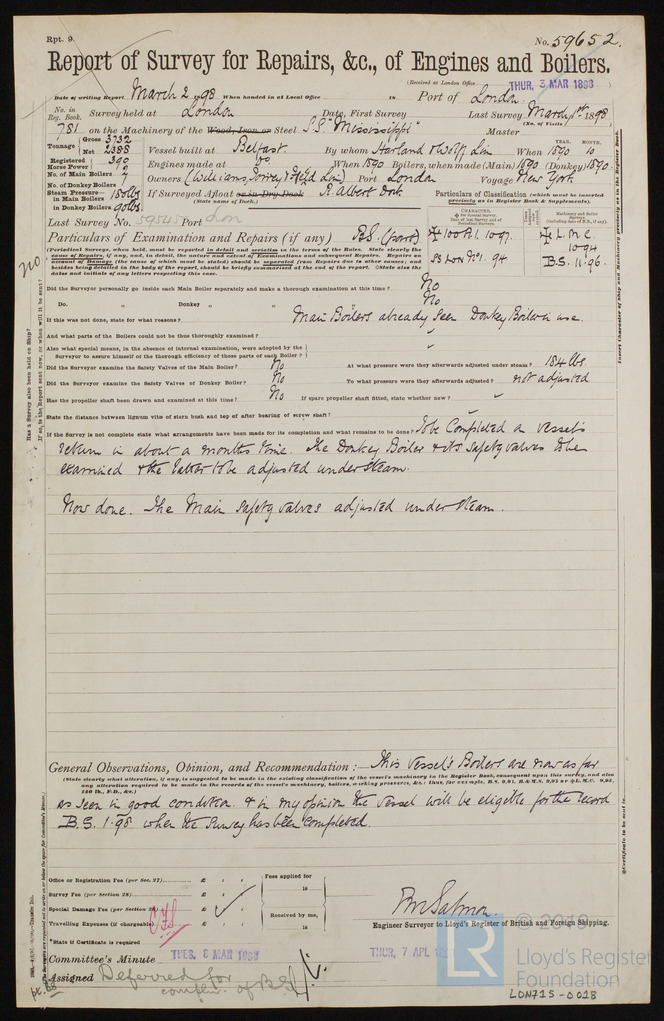 Rpt. 9.
No. 59652.
Report of Survey for Repairs, &c., of Engines and Boilers.
(Received at London Office THUR, 3 MAR 1898)
Date of writing Report March 2 1898 When handed in at Local Office 18 Port of London
No. in Reg. Book. Survey held at London Date, First Survey Last Survey March 1st 1898
(No. of Visits )
781 on the Machinery of the Wood, Iron or Steel S.S. "Mississippi" Master
Tonnage Gross 3732 Net 2388
Vessel built at Belfast By whom Harland & Wolff Lim When 1890 YEAR. MONTH. 10
Registered Horse Power 390
Engines made at do When 1890 Boilers, when made (Main) 1890 (Donkey) 1890
No. of Main Boilers 2
Owners (Williams, Torrey & Feild Lim) Port London Voyage New York
No. of Donkey Boilers 1
Steam Pressure in Main Boilers 180 lbs
in Donkey Boilers 90 lbs
If Surveyed Afloat or in Dry Dock R. Albert Dock
(State name of Dock.)
Particulars of Classification (which must be inserted precisely as in Register Book & Supplements).
Last Survey No. 59545 Port Lon
Particulars of Examination and Repairs (if any) B.S. (part)
(Periodical Surveys, when held, must be reported in detail and seriatim in the terms of the Rules. State clearly the cause of Repairs, if any, and, in detail, the nature and extent of Examinations and subsequent Repairs. Repairs on account of Damage (the cause of which must be stated) should be separated from Repairs due to other causes; and besides being detailed in the body of the report, should be briefly summarised at the end of the report. State also the dates and initials of any letters respecting this case.
CHARACTER.
Machinery and Boiler Surveys
100 A.1. 10.97.
SS Lon No 1. 94
L.M.C. 10.94
B.S. 11.96.
Did the Surveyor personally go inside each Main Boiler separately and make a thorough examination at this time? No
Do. " Donkey " " " No
If this was not done, state for what reasons? Main Boilers already seen Donkey Boiler in use.
And what parts of the Boilers could not be thus thoroughly examined?
Also what special means, in the absence of internal examination, were adopted by the Surveyor to assure himself of the thorough efficiency of those parts of each Boiler?
Did the Surveyor examine the Safety Valves of the Main Boiler? No At what pressure were they afterwards adjusted under steam? 184 lbs
Did the Surveyor examine the Safety Valves of Donkey Boiler? No To what pressure were they afterwards adjusted? not adjusted
Has the propeller shaft been drawn and examined at this time? No If spare propeller shaft fitted, state whether new?
State the distance between lignum vitæ of stern bush and top of after bearing of screw shaft?
If the Survey is not complete state what arrangements have been made for its completion and what remains to be done? To be completed on vessel's
return in about a months time. The Donkey Boiler & its safety valves to be
examined & the latter to be adjusted under steam.
Now done. The Main safety valves adjusted under steam.
General Observations, Opinion, and Recommendation:— This vessel's Boilers are now as far
(State clearly what alteration, if any, is suggested to be made in the existing classification of the vessel's machinery in the Register Book, consequent upon this survey, and also any alteration required to be made in the records of the vessel's machinery, boilers, working pressures, &c.: thus, for example, B.S. 9,91, B.&M.S. 9,91 or L.M.C. 9,91, 140 lb., F.D., &c.)
as seen in good condition. & in my opinion the vessel will be eligible for the record
B.S. 1.98 when the survey has been completed.
Office or Registration Fee (per Sec. 27) £ : :
Survey Fee (per Section 28) £ : :
Special Damage Fee (per Section 28) £ : :
Travelling Expenses (if chargeable) £ : :
Fees applied for 18
Received by me, 18
*State if Certificate is required
Salmon
Engineer Surveyor to Lloyd's Register of British and Foreign Shipping.
Committee's Minute TUES, 8 MAR 1898 THUR, 7 APL
Assigned Deferred for
compln. of BS
© 2019
LR
Lloyd's Register
Foundation
LON715-0018
no.